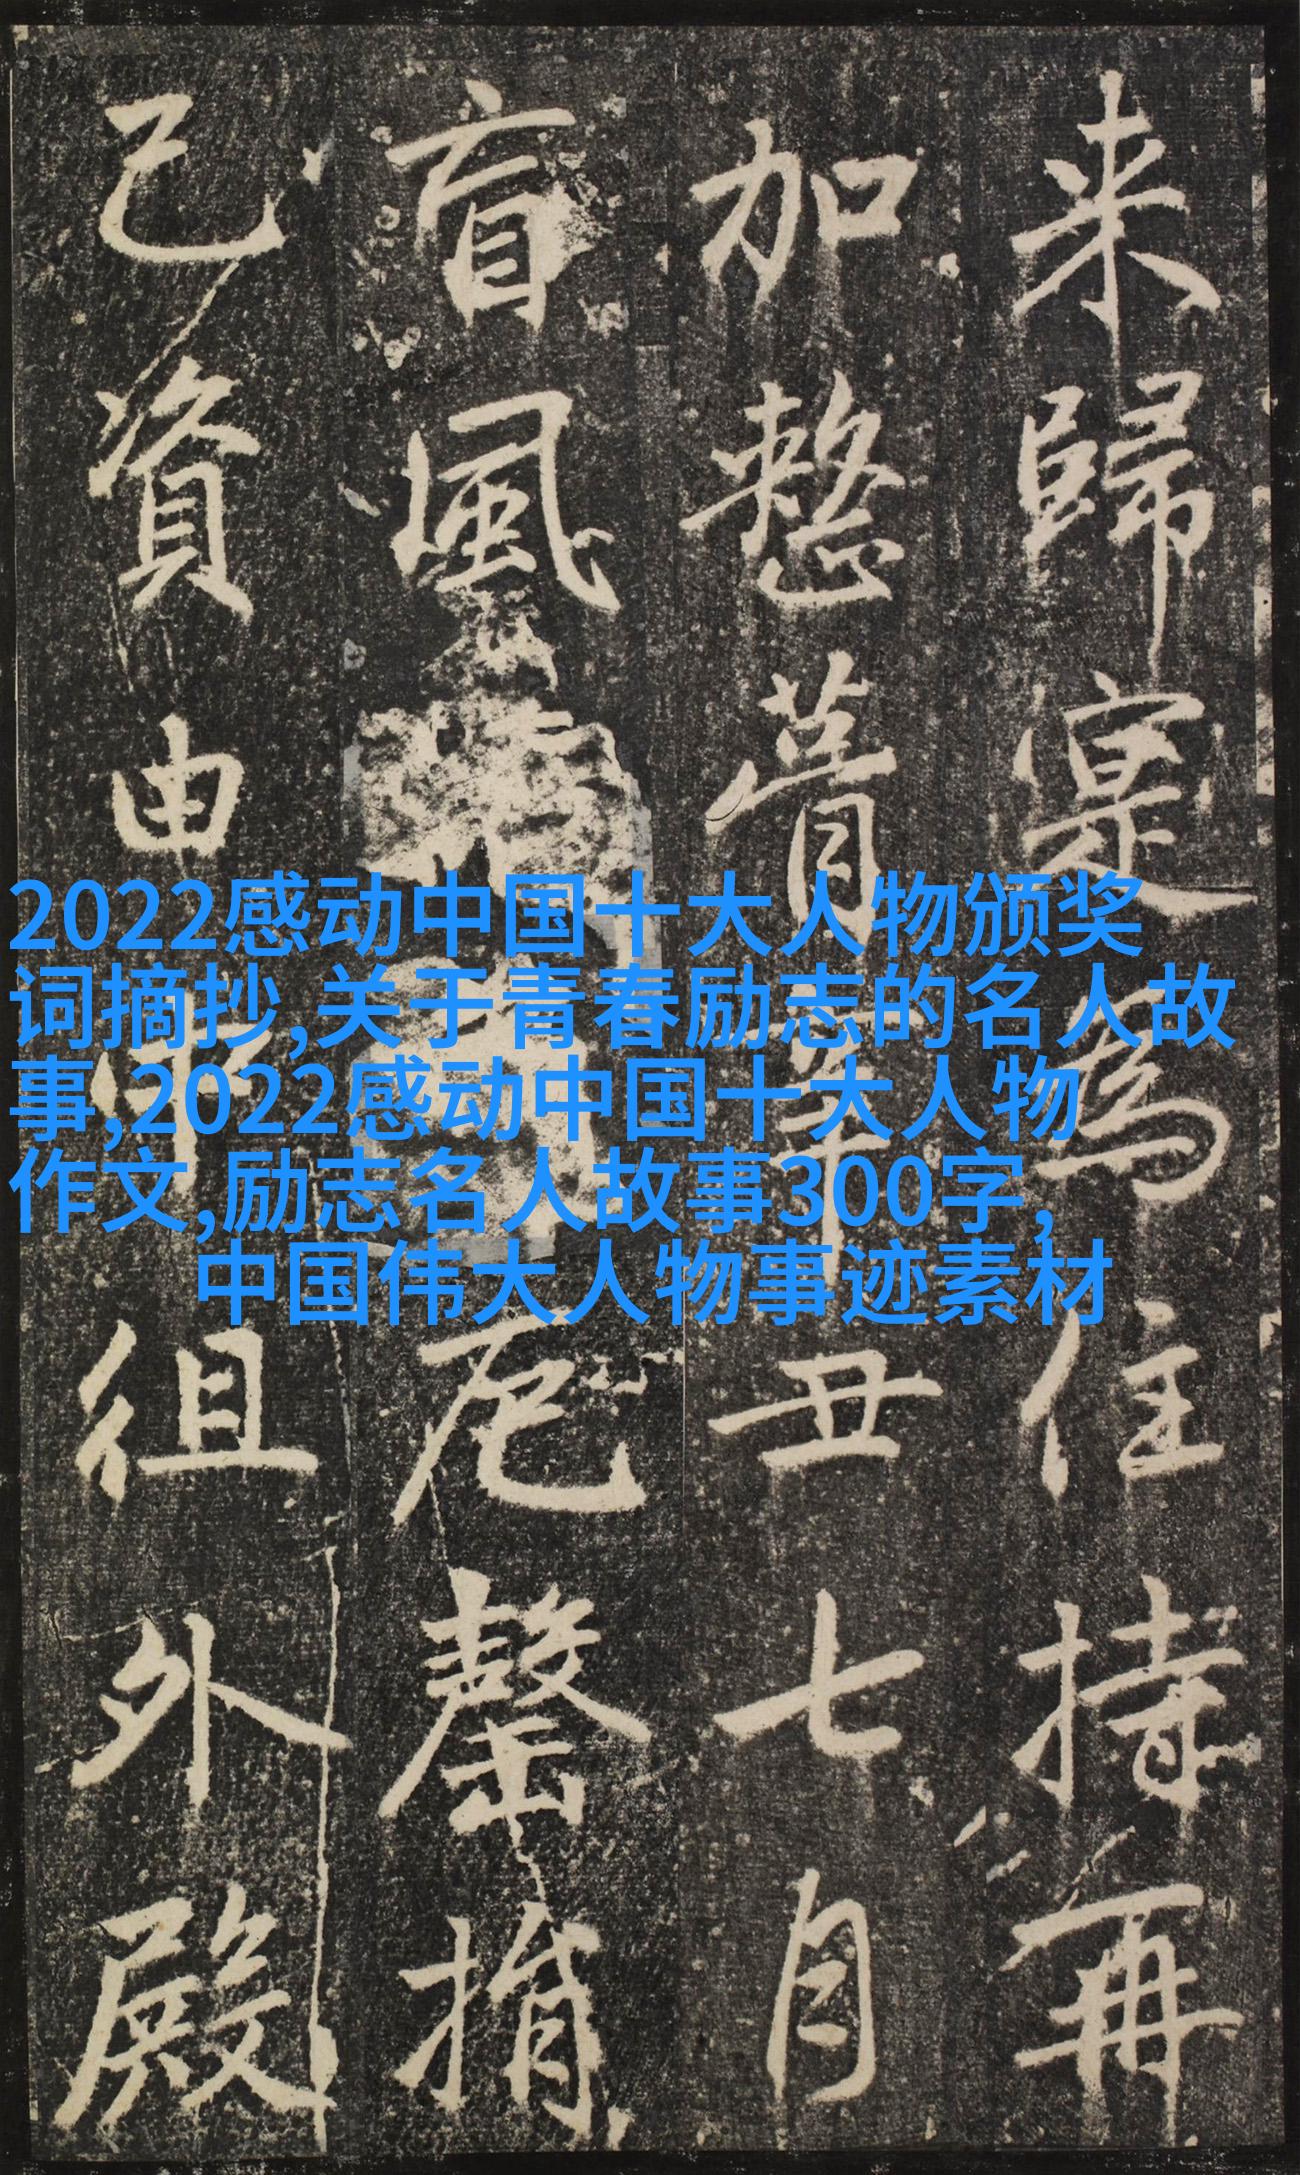 来歸寔為住持再
加整葺辛丑七月
盲風尼罄捐
己資由中徂外殿
2022感动中国十大人物颁奖
词摘抄,关于青春励志的名人故
事,2022感动中国十大人物
作文,励志名人故事300字,
中国伟大人物事迹素材